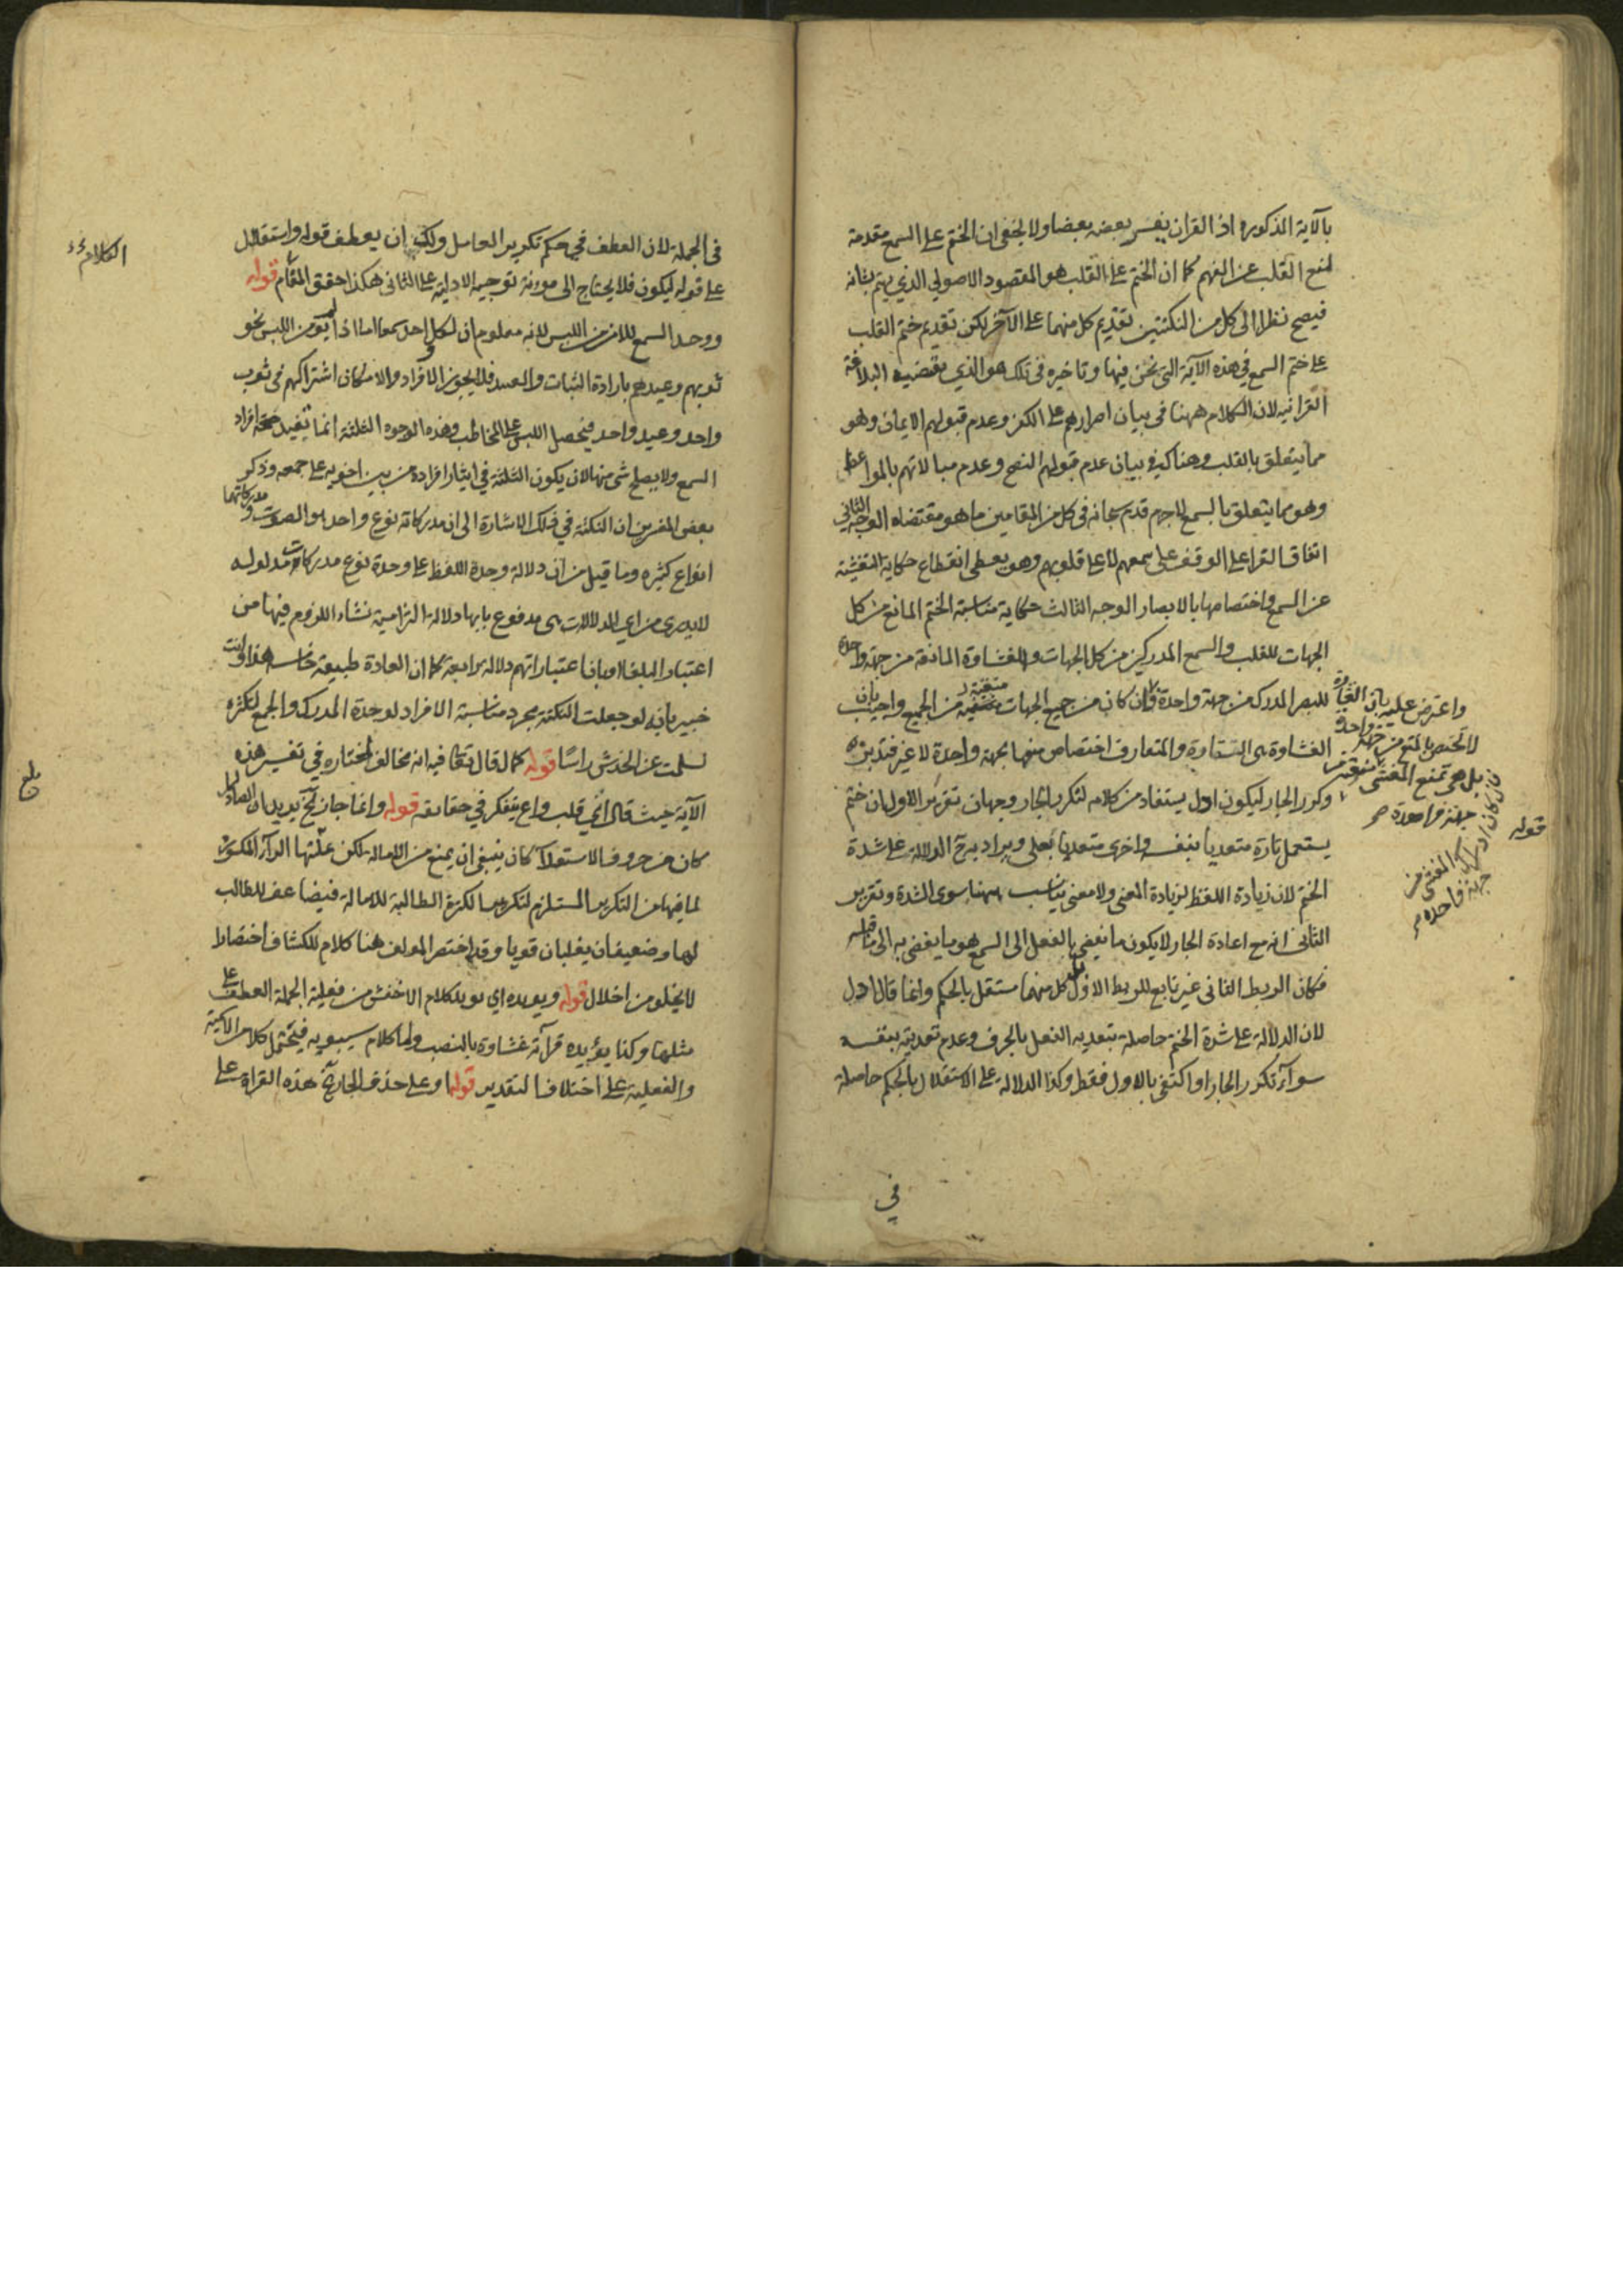 بالآية المذكورة اذ القران يفسر بعضه بعضا ولا يخفى ان الختم على السمع مقدمة
لمنع القلب عن الفهم كما ان الختم على القلب هو المقصود الاصولي الذي يتم بشانه
فيصح نظرا الى كل من النكتتين تقديم كل منهما على الآخر لكن تقديم ختم القلب
على ختم السمع في هذه الآية التي نحن فيها وتاخيره في تلك هو الذي يقتضيه البلاغة
القرانية لان الكلام ههنا في بيان اصرارهم على الكفر وعدم قبولهم الايمان وهو
مما يتعلق بالقلب وهناك في بيان عدم قبولهم النصح وعدم مبالاتهم بالمواعظ
وهو مما يتعلق بالسمع لاجرم قدم سبحانه في كل من المقامين ما هو مقتضاه الوجه الثاني
اتفاق القراء على الوقف على سمعهم لا على قلوبهم وهو يعطي انقطاع حكاية التغشية
عن السمع واختصاصها بالابصار الوجه الثالث حكاية مناسبة الختم المانع من كل
الجهات للقلب والسمع المدركين من كل الجهات والغشاوة المانعة من جهة واحدة
للبصر المدرك من جهة واحدة وان كان من جميع الجهات من الجميع واجيب بان
الغشاوة هي الستارة والمتعارف اختصاص منعها بجهة واحدة لا غير فتدبره
وكرر الجار ليكون ادل يستفاد من كلامه لتكرير الجار وجهان تقرير الاول ان ختم
يستعمل تارة متعديا بنفسه واخرى متعديا بعلى ويراد به ح الدلالة على شدة
الختم لان زيادة اللفظ لزيادة المعنى ولا معنى يناسب ههنا سوى الشدة وتقرير
الثاني انه مع اعادة الجار لا يكون ما يفضي بالفعل الى السمع هو ما يفضي به الى ما قبله
فكان الربط الثاني غير تابع للربط الاول بل كل منهما مستقل بالحكم وانما قال ادل
لان الدلالة على شدة الختم حاصلة بتعدية الفعل بالحرف وعدم تعديته بنفسه
سواء تكرر الجار او اكتفى بالاول فقط وكذا الدلالة على الاستقلال بالحكم حاصلة
واعترض عليه بان الغشاوة
لا تختص بالمنع من جهة واحدة
بل هي تمنع المغشى
جهة واحدة
قوله
في
في الجملة لان العطف في حكم تكرير العامل ولك ان يعطف قوله واستقلال
الكلام
على قوله ليكون فلا يحتاج الى مؤونة توجيه الادلية على الثاني هكذا حقق المقام قوله
ووحد السمع للامن من اللبس لانه معلوم ان لكل احد سمعا اما اذا لم يؤمن اللبس نحو
ثوبهم وعبيدهم بارادة الثياب والعبيد فلا يجوز الافراد والامكان اشتراكهم في ثوب
واحد وعبد واحد فيحصل اللبس على المخاطب وهذه الوجوه الثلثة انما تفيد صحة افراد
السمع ولا يصلح شي منها لان يكون النكتة في ايثار افراده من بين اخويه على جمعه وذكر
بعض المفسرين ان النكتة في ذلك الاشارة الى ان مدركاته نوع واحد هو الصوت ومدركاتهما
انواع كثيرة وما قيل من ان دلالة وحدة اللفظ على وحدة نوع مدركات مدلوله
لا يدرى من اي الدلالات هي مدفوع بانها دلالة التزامية نشاء اللزوم فيها من
اعتبار البلغا وبان اعتباراتهم دلالة رابعة كما ان العادة طبيعة خامسة هذا وانت
خبير بانه لو جعلت النكتة مجرد مناسبة الافراد لوحدة المدرك والجمع لكثرة
لسلمت عن الخدش راسا قوله كما قال تعالى فيه انه مخالف لمختاره في تفسير هذه
الآية حيث قال اي قلب واع يتفكر في حقائقه قوله وانما جاز الخ يريد ان الصاد لما
كان من حروف الاستعلاء كان ينبغي ان يمنع من الامالة لكن غلبتها الراء المكسورة
لما فيها من التكرير المستلزم لتكرير الكسرة الطالبة للامالة فيضاعف الطالب
لها وضعيفان يغلبان قويا وقد اختصر المولف هنا كلام الكشاف اختصارا
لا يخلو من اخلال قوله ويؤيده اي يؤيد كلام الاخفش من فعلية الجملة العطف على
مثلها وكذا يؤيده قراءة غشاوة بالنصب واما كلام سيبويه فيحتمل كلا من الاسمية
والفعلية على اختلاف التقدير قوله او على حذف الجار الخ هذه القراة على
بلغ